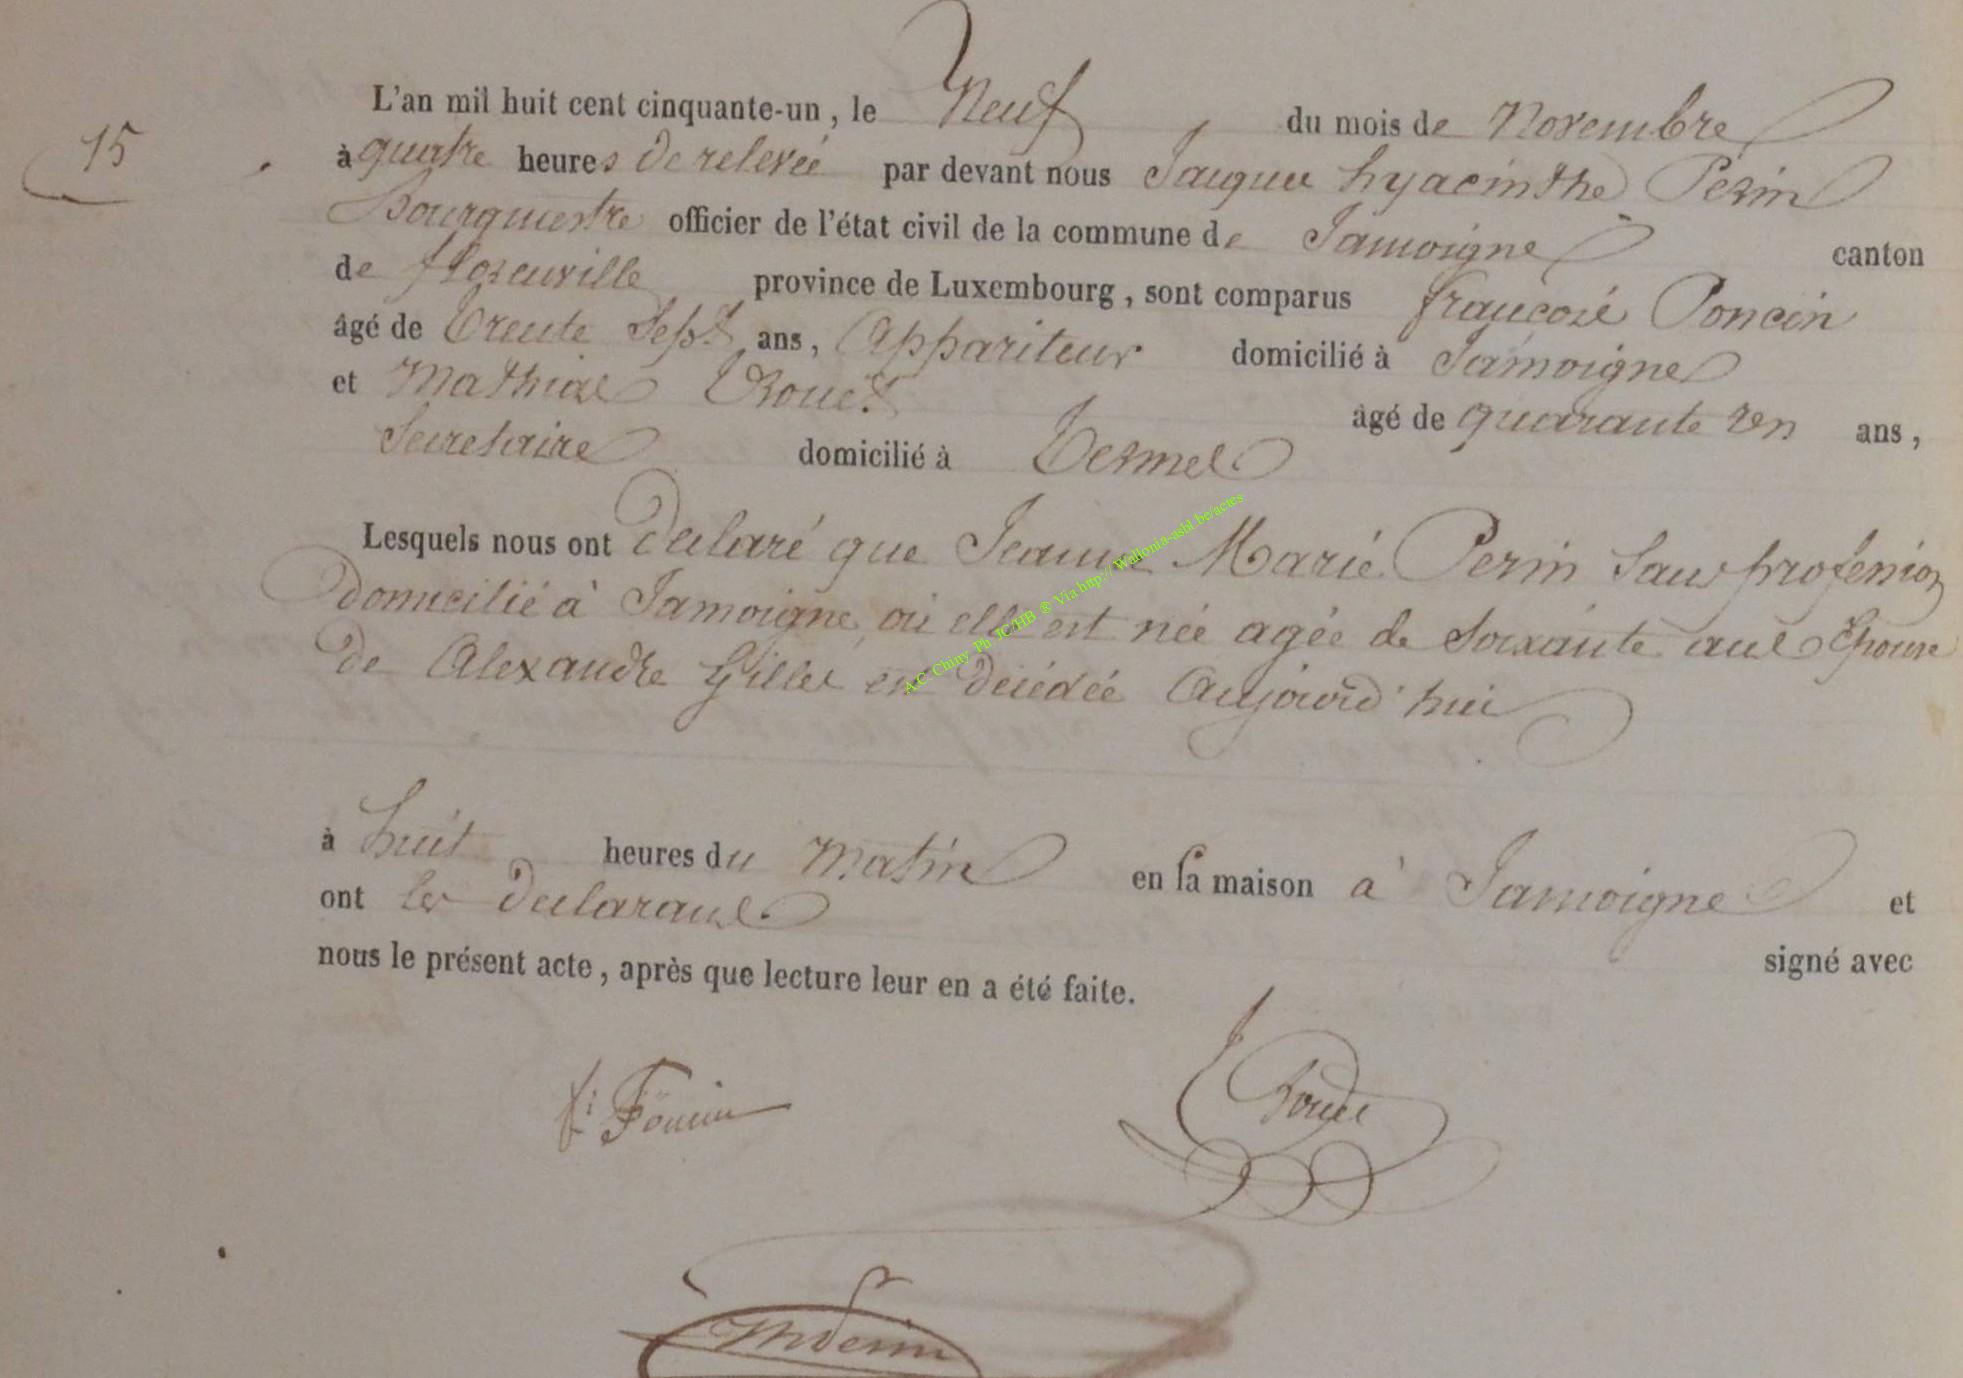 15
L'an mil huit cent cinquante-un, le Neuf du mois de Novembre
à quatre heures de relevée par devant nous Jacques hyacinthe Perin
Bourgmestre officier de l'état civil de la commune de Jamoigne canton
de florenville province de Luxembourg, sont comparus françois Poncin
âgé de Trente Sept ans, Appariteur domicilié à Jamoigne
et Mathias Rouet âgé de quarante un ans,
Secretaire domicilié à Termes
Lesquels nous ont déclaré que Jeanne Marie Perin Sans profession
domicilié à Jamoigne où elle est née agée de Soixante ans Epouse
de Alexandre Gilles est décédée Aujourd'hui
à huit heures du Matin en sa maison à Jamoigne et
ont les déclarans signé avec
nous le présent acte, après que lecture leur en a été faite.
A.C Chiny Ph JC/HB ® Via http://Wallonia-asbl.be/actes